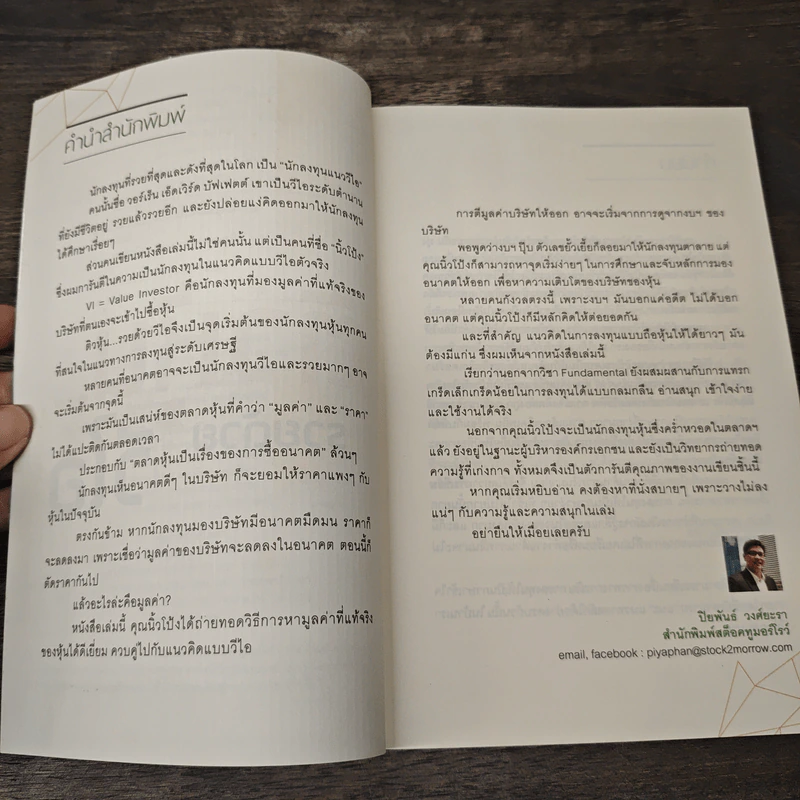 คำนำสำนักพิมพ์
นักลงทุนที่รวยที่สุดและดังที่สุดในโลก เป็น "นักลงทุนแนววีไอ"
คนนั้นชื่อ วอร์เร็น เอ็ดเวิร์ด บัฟเฟตต์ เขาเป็นวีไอระดับตำนาน
ที่ยังมีชีวิตอยู่ รวยแล้วรวยอีก และยังปล่อยแง่คิดออกมาให้นักลงทุน
ได้ศึกษาเรื่อยๆ
ส่วนคนเขียนหนังสือเล่มนี้ไม่ใช่คนนั้น แต่เป็นคนที่ชื่อ "นิ้วโป้ง"
ซึ่งผมการันตีในความเป็นนักลงทุนในแนวคิดแบบวีไอตัวจริง
VI = Value Investor คือนักลงทุนที่มองมูลค่าที่แท้จริงของ
บริษัทที่ตนเองจะเข้าไปซื้อหุ้น
ติวหุ้น...รวยด้วยวีไอจึงเป็นจุดเริ่มต้นของนักลงทุนหุ้นทุกคน
ที่สนใจในแนวทางการลงทุนสู่ระดับเศรษฐี
หลายคนที่อนาคตอาจจะเป็นนักลงทุนวีไอและรวยมากๆ อาจ
จะเริ่มต้นจากจุดนี้
เพราะมันเป็นเสน่ห์ของตลาดหุ้นที่คำว่า "มูลค่า" และ "ราคา"
ไม่ได้แปะติดกันตลอดเวลา
ประกอบกับ "ตลาดหุ้นเป็นเรื่องของการซื้ออนาคต" ล้วนๆ
นักลงทุนเห็นอนาคตดีๆ ในบริษัท ก็จะยอมให้ราคาแพงๆ กับ
หุ้นในปัจจุบัน
ตรงกันข้าม หากนักลงทุนมองบริษัทมีอนาคตมืดมน ราคาก็
จะลดลงมา เพราะเชื่อว่ามูลค่าของบริษัทจะลดลงในอนาคต ตอนนี้ก็
ตัดราคากันไป
แล้วอะไรล่ะคือมูลค่า?
หนังสือเล่มนี้ คุณนิ้วโป้งได้ถ่ายทอดวิธีการหามูลค่าที่แท้จริง
ของหุ้นได้ดีเยี่ยม ควบคู่ไปกับแนวคิดแบบวีไอ
การตีมูลค่าบริษัทให้ออก อาจจะเริ่มจากการดูจากงบฯ ของ
บริษัท
พอพูดว่างบฯ ปุ๊บ ตัวเลขยั้วเยี้ยก็ลอยมาให้นักลงทุนตาลาย แต่
คุณนิ้วโป้งก็สามารถหาจุดเริ่มง่ายๆ ในการศึกษาและจับหลักการมอง
อนาคตให้ออก เพื่อหาความเติบโตของบริษัทของหุ้น
หลายคนกังวลตรงนี้ เพราะงบฯ มันบอกแค่อดีต ไม่ได้บอก
อนาคต แต่คุณนิ้วโป้งก็มีหลักคิดให้ต่อยอดกัน
และที่สำคัญ แนวคิดในการลงทุนแบบถือหุ้นให้ได้ยาวๆ มัน
ต้องมีแก่น ซึ่งผมเห็นจากหนังสือเล่มนี้
เรียกว่านอกจากวิชา Fundamental ยังผสมผสานกับการแทรก
เกร็ดเล็กเกร็ดน้อยในการลงทุนได้แบบกลมกลืน อ่านสนุก เข้าใจง่าย
และใช้งานได้จริง
นอกจากคุณนิ้วโป้งจะเป็นนักลงทุนหุ้นซึ่งคร่ำหวอดในตลาดฯ
แล้ว ยังอยู่ในฐานะผู้บริหารองค์กรเอกชน และยังเป็นวิทยากรถ่ายทอด
ความรู้ที่เก่งกาจ ทั้งหมดจึงเป็นตัวการันตีคุณภาพของงานเขียนชิ้นนี้
หากคุณเริ่มหยิบอ่าน คงต้องหาที่นั่งสบายๆ เพราะวางไม่ลง
แน่ๆ กับความรู้และความสนุกในเล่ม
อย่ายืนให้เมื่อยเลยครับ
ปิยพันธ์ วงศ์ยะรา
สำนักพิมพ์สต็อคทูมอร์โรว์
email, facebook : piyaphan@stock2morrow.com